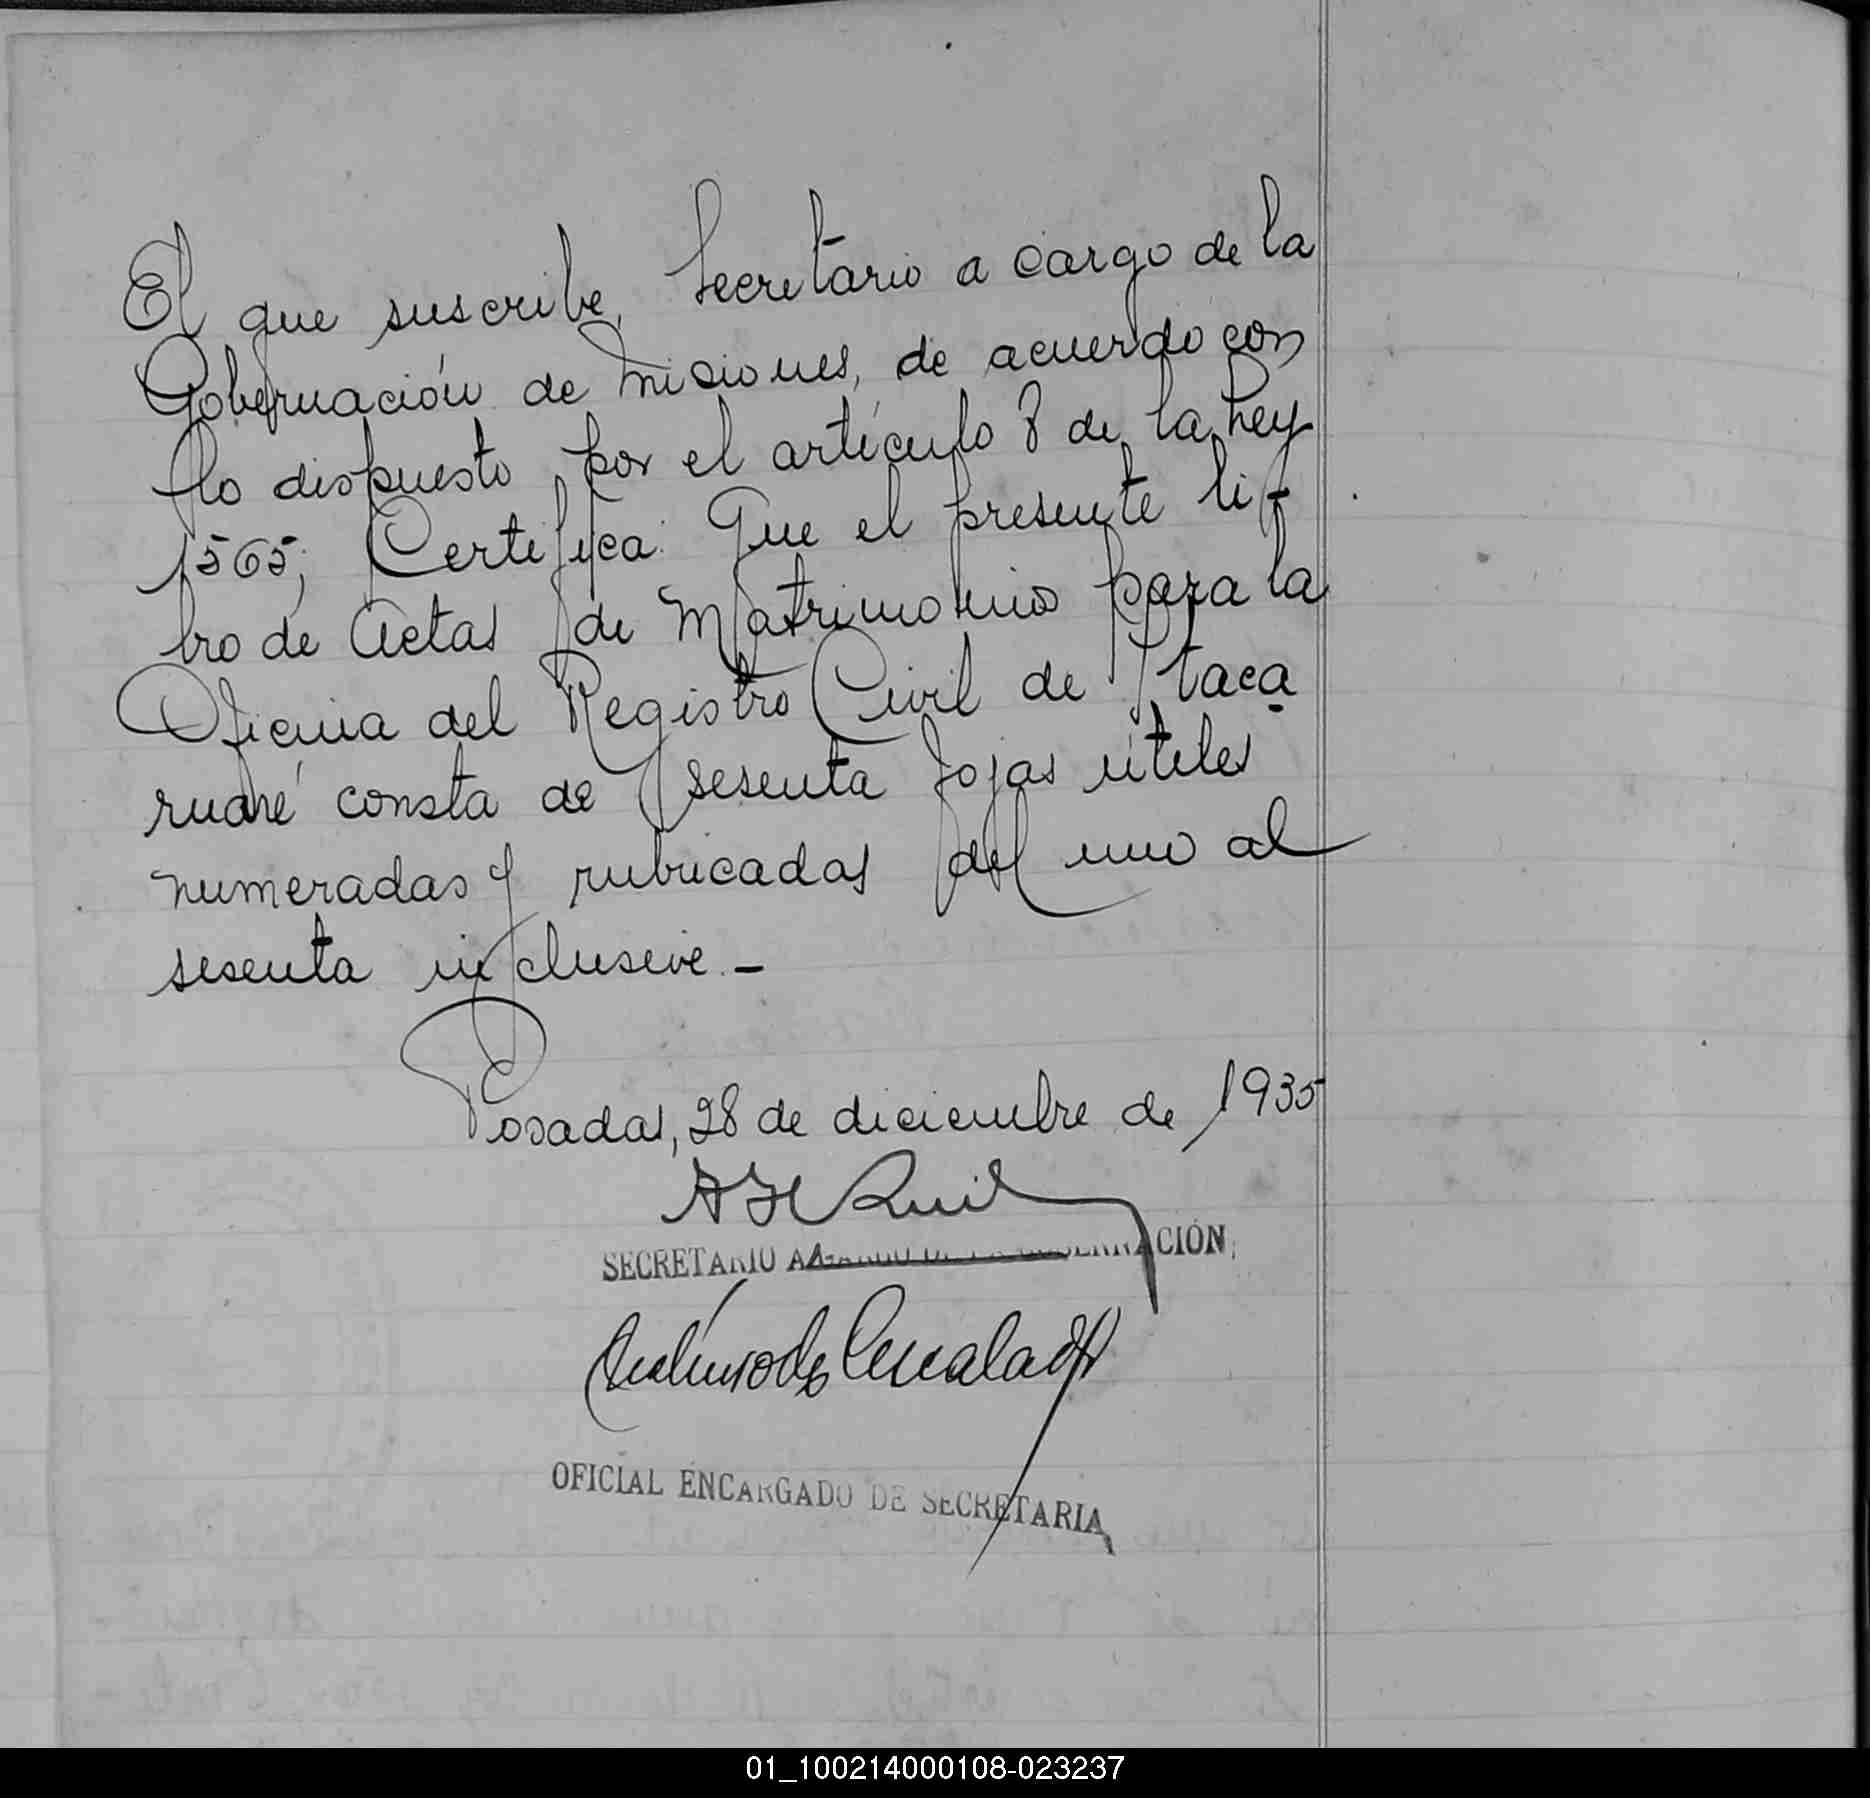 El que suscribe, Secretario a cargo de la
Gobernación de Misiones, de acuerdo con
lo dispuesto por el artículo 8 de la Ley
1565; Certifica: Que el presente li-
bro de Actas de Matrimonio para la
Oficina del Registro Civil de Itaca
ruaré consta de sesenta fojas útiles
numeradas y rubricadas del uno al
sesenta inclusive.-
Posadas, 28 de diciembre de 1935
SECRETARIO A CARGO DE LA GOBERNACIÓN
OFICIAL ENCARGADO DE SECRETARIA
01_100214000108-023237